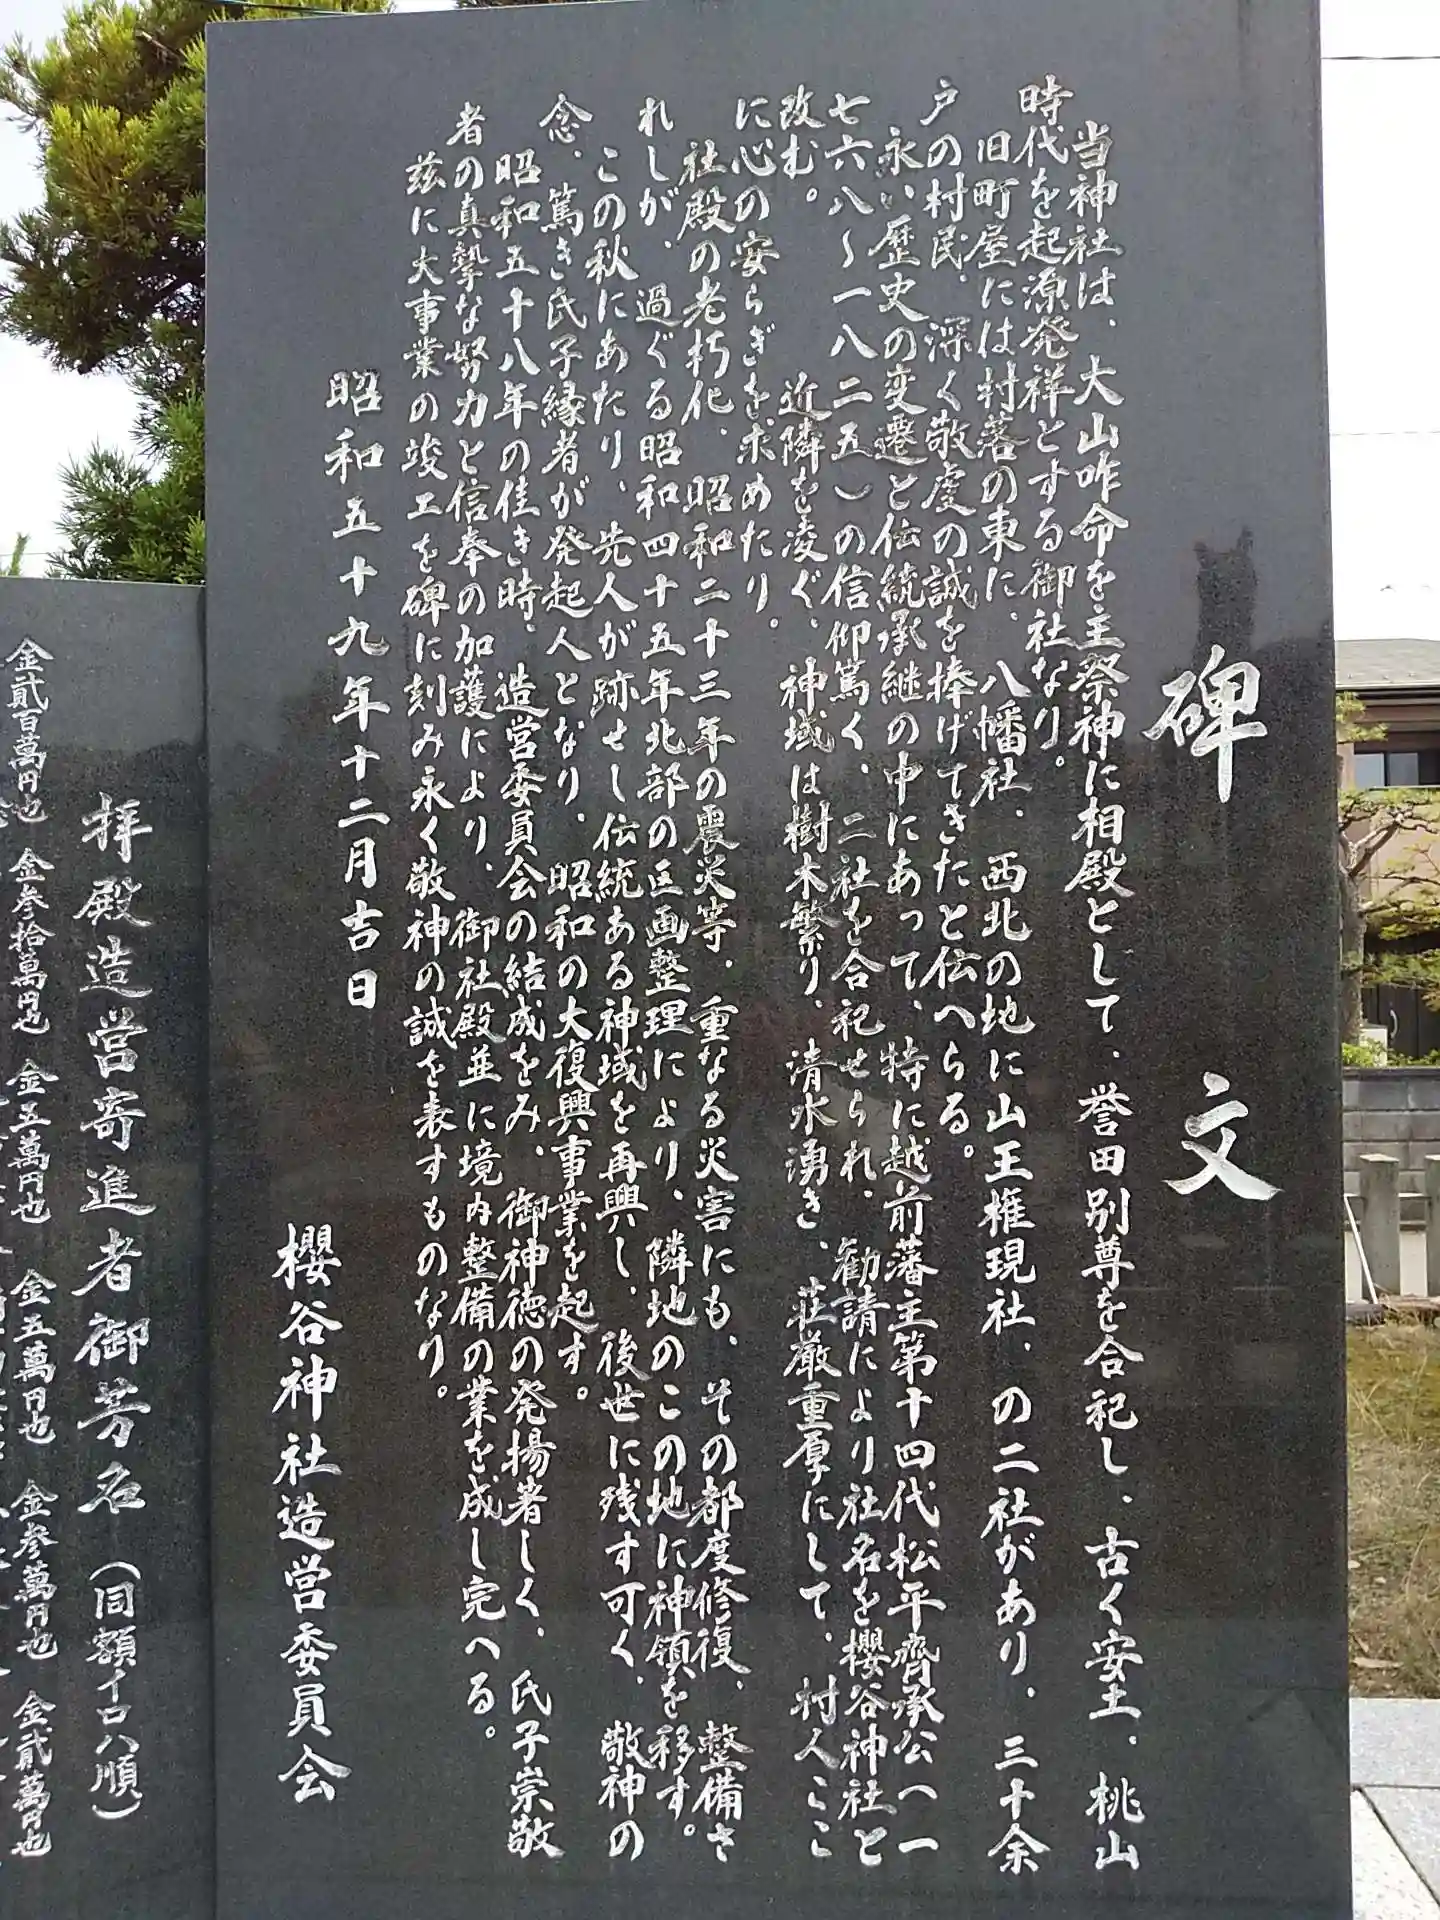 碑文
当神社は、大山咋命を主祭神に相殿として、誉田別尊を合祀し、古く安土、桃山
時代を起源発祥とする御社なり。
旧町屋には村落の東に、八幡社、西北の地に山王権現社、の二社があり、三十余
戸の村民、深く敬虔の誠を捧げてきたと伝へらる。
永い歴史の変遷と伝統承継の中にあって、特に越前藩主第十四代松平齊承公(一
七六八〜一八二五)の信仰篤く、二社を合祀せられ、勧請により社名を櫻谷神社と
改む。
近隣を凌ぐ、神域は樹木繁り、清水湧き、荘厳重厚にして、村人ここ
に心の安らぎを求めたり。
社殿の老朽化、昭和二十三年の震災等、重なる災害にも、その都度修復、整備さ
れしが、過ぐる昭和四十五年北部の区画整理により、隣地のこの地に神領を移す。
この秋にあたり、先人が跡せし伝統ある神域を再興し、後世に残す可く、敬神の
念、篤き氏子縁者が発起人となり、昭和の大復興事業を起す。
昭和五十八年の佳き時、造営委員会の結成をみ、御神徳の発揚著しく、氏子崇敬
者の真摯な努力と信奉の加護により、御社殿並に境内整備の業を成し完へる。
茲に大事業の竣工を碑に刻み永く敬神の誠を表すものなり。
昭和五十九年十二月吉日
櫻谷神社造営委員会
拝殿造営寄進者御芳名(同額イロハ順)
金貮百萬円也 金参拾萬円也 金五萬円也 金五萬円也 金参萬円也 金貮萬円也